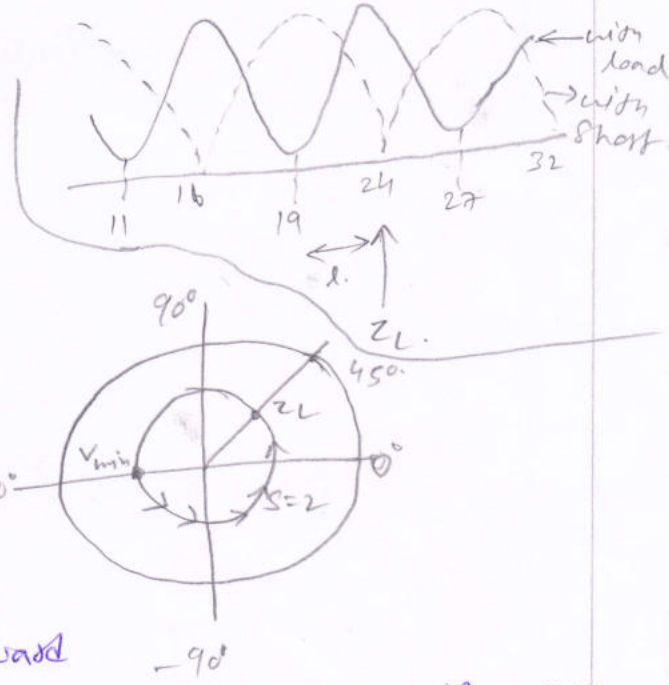 with
load
with
short
11 16 19 24 27 32
l.
Z_L.
90°
45°
Z_L
V_min
0°
0°
S=2
-90°
ward